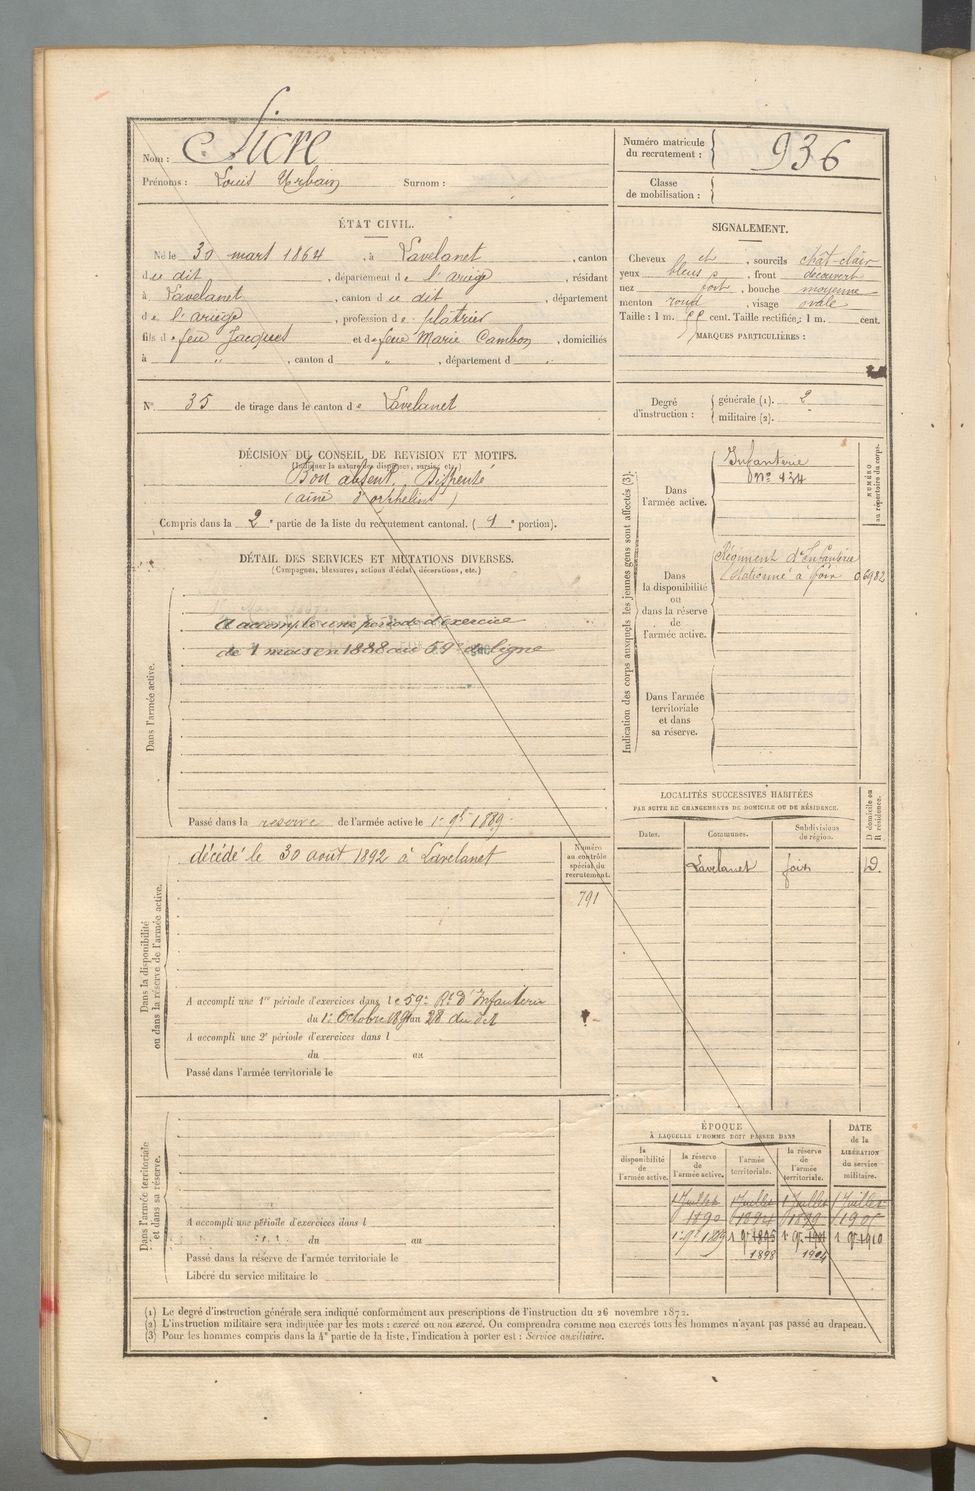 Nom : Sicre
Prénoms : Louis Urbain Surnom :
Numéro matricule du recrutement : 936
Classe de mobilisation :
ÉTAT CIVIL.
Né le 30 mars 1864, à Lavelanet, canton
du dit, département de l'ariège, résidant
à Lavelanet, canton du dit, département
de l'ariège, profession de plâtrier
fils de feu Jacques et de feue Marie Cambon, domiciliés
à " , canton d " , département d "
N° 35 de tirage dans le canton de Lavelanet
SIGNALEMENT.
Cheveux et, sourcils chat-clair
yeux bleus, front découvert
nez fort, bouche moyenne
menton rond, visage ovale
Taille : 1 m. 55 cent. Taille rectifiée : 1 m. cent.
MARQUES PARTICULIÈRES :
Degré d'instruction : générale (1). 2
militaire (2).
DÉCISION DU CONSEIL DE REVISION ET MOTIFS.
(Indiquer la nature des dispenses, sursis, etc.)
Bon absent, Dispensé
(aîné d'orphelins)
Compris dans la 2e partie de la liste du recrutement cantonal. (1e portion).
DÉTAIL DES SERVICES ET MUTATIONS DIVERSES.
(Campagnes, blessures, actions d'éclat, décorations, etc.)
Dans l'armée active.
A accompli une période d'exercice
de 1 mois en 1888 au 59e de ligne
Passé dans la reserve de l'armée active le 1r 9bre 1889
Indication des corps auxquels les jeunes gens sont affectés (3).
NUMÉRO au répertoire du corps.
Dans l'armée active.
Infanterie
Dans la disponibilité ou dans la réserve de l'armée active.
Régiment d'Infanterie
stationné à foix 06982
Dans l'armée territoriale et dans sa réserve.
LOCALITÉS SUCCESSIVES HABITÉES
PAR SUITE DE CHANGEMENTS DE DOMICILE OU DE RÉSIDENCE.
D domicile ou R résidence.
Dates. Communes. Subdivisions de région.
Lavelanet foix D.
Dans la disponibilité ou dans la réserve de l'armée active.
décédé le 30 août 1892 à Lavelanet
Numéro au contrôle spécial du recrutement.
791
A accompli une 1re période d'exercices dans le 59e Rt d'Infanterie
du 1r Octobre 1891 au 28 du dit
A accompli une 2e période d'exercices dans l
du au
Passé dans l'armée territoriale le
Dans l'armée territoriale et dans sa réserve.
A accompli une période d'exercices dans l
du au
Passé dans la réserve de l'armée territoriale le
Libéré du service militaire le
ÉPOQUE
À LAQUELLE L'HOMME DOIT PASSER DANS
DATE de la LIBÉRATION du service militaire.
la disponibilité de l'armée active. la réserve de l'armée active. l'armée territoriale. la réserve de l'armée territoriale.
1 Juillet 1 Juillet 1 Juillet 1 Juillet
1890
1r 9bre 1889 1r 9bre 1r 9bre 1r 9bre 1910
1898 1904
(1) Le degré d'instruction générale sera indiqué conformément aux prescriptions de l'instruction du 26 novembre 1872.
(2) L'instruction militaire sera indiquée par les mots : exercé ou non exercé. On comprendra comme non exercés tous les hommes n'ayant pas passé au drapeau.
(3) Pour les hommes compris dans la 4e partie de la liste, l'indication à porter est : Service auxiliaire.